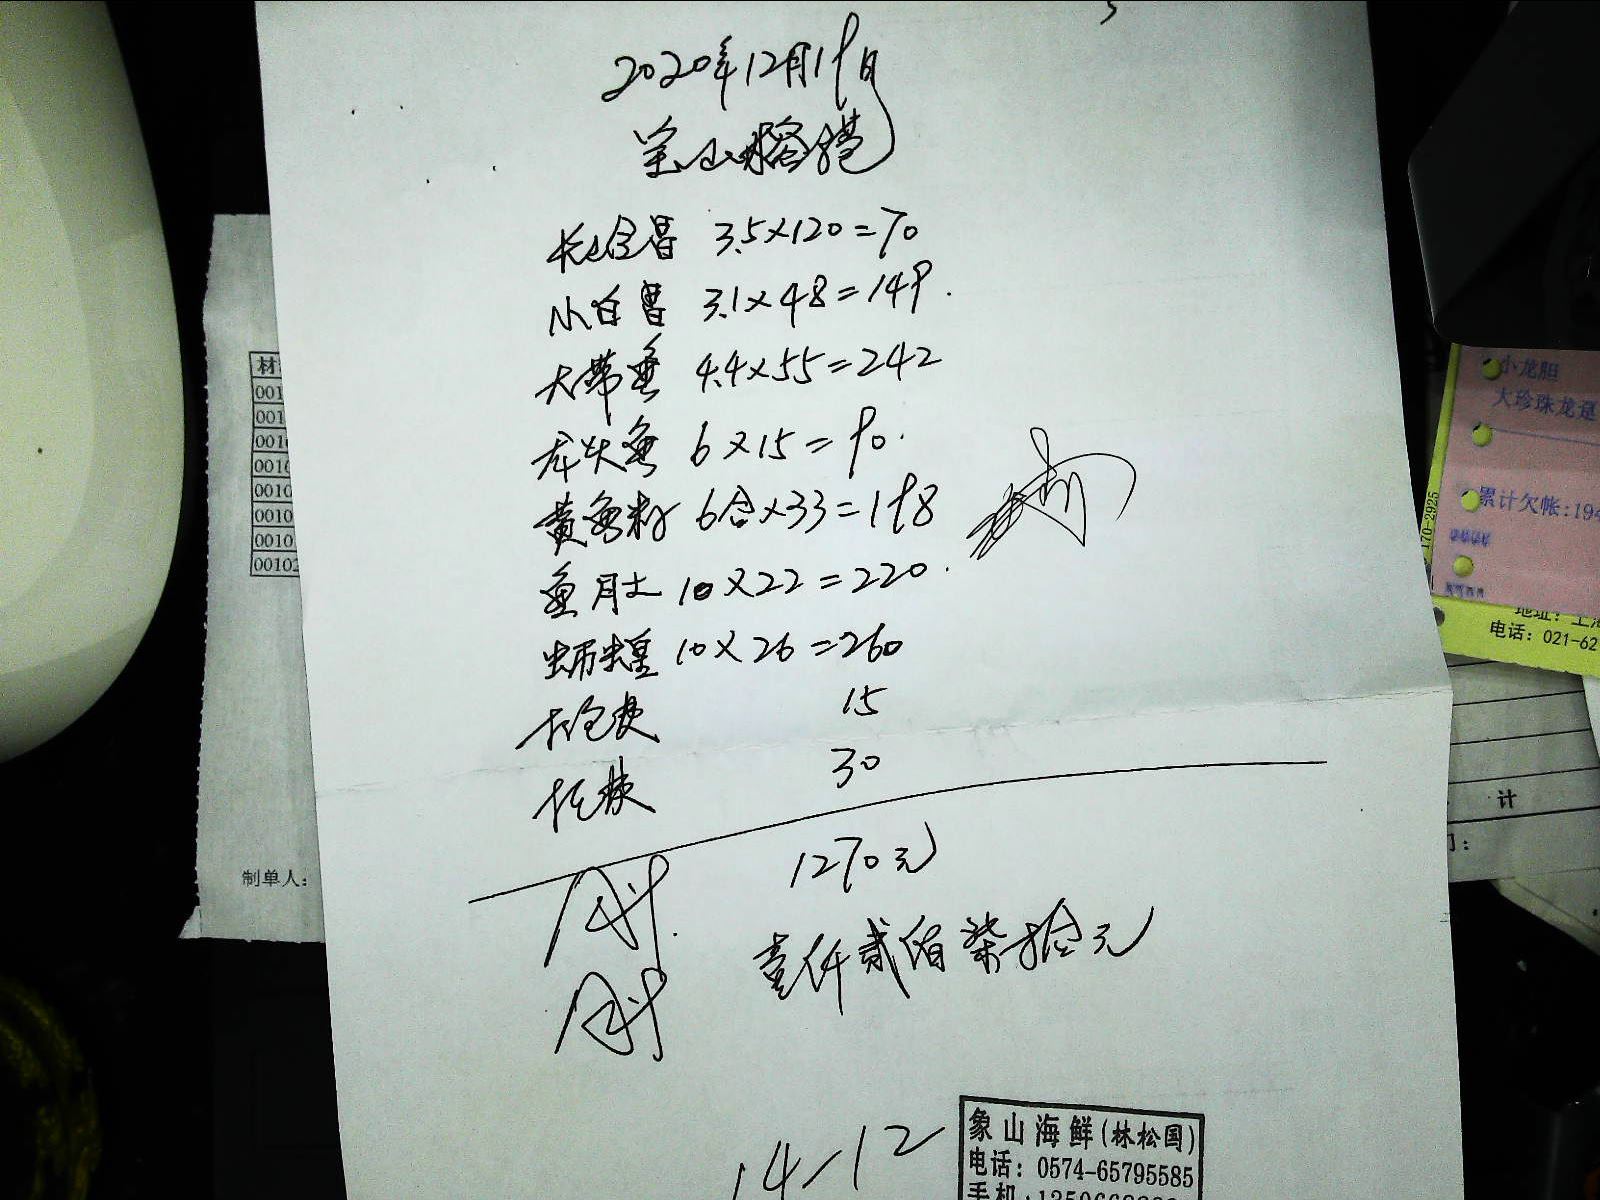 2020年12月19日
宝山
3.5×120=70
小白 3.1×48=149.
大带鱼 4.4×55=242
龙头鱼 6×15=90.
黄鱼籽 6合×33=198
鱼肚 10×22=220.
10×26=260
15
30
1270元
壹仟贰佰柒拾元
14-12
象山海鲜(林松国)
电话: 0574-65795585
手机:
材
001
001
001
0010
0010
0010
0010
00102
制单人:
小龙胆
大珍珠龙趸
累计欠帐:194
170-2925
地址: 上海
电话: 021-62
计
门: